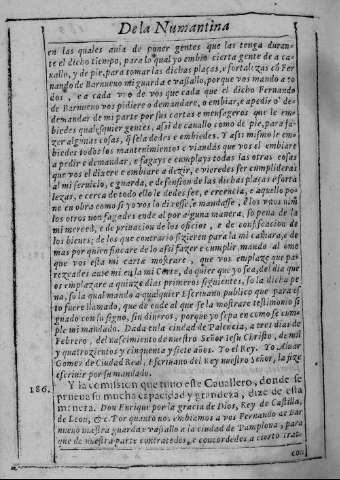 De la Numantina
en las quales auia de poner gentes que las tenga duran-
te el dicho tiempo, para lo qual yo embio cierta gente de a ca-
uallo, y de pie, para tomar las dichas plaças, e fortalezas cõ Fer
nando de Barnueuo mi guarda e vassallo, porque vos mando a to
dos, e a cada vno de vos que cada que el dicho Fernando
de Barnueuo vos pidiere o demandare, o embiare a pedir o de-
mandar de mi parte por sus cartas e mensageros que le em-
biedes qualesquier gentes, assi de cauallo como de pie, para fa-
zer algunas cosas, q̃ se la dedes e embiedes. Y assi mismo le em-
biedes todos los mantenimientos e viandas que vos el embiare
a pedir e demandar, e fagays e cumplays todas las otras cosas
que vos el dixere e embiare a dezir, e vieredes ser cumplideras
al mi seruicio, e guarda, e defension de las dichas plaças e forta
lezas, e cerca de todo ello le dedes fee, e creencia, e aquello po-
ned en obra como si yo vos lo dixesse, e mandasse, e los vnos nin
los otros non fagades ende al por alguna manera, so pena de la
mi merced, e de priuacion de los oficios, e de confiscacion de
los bienes, de los que contrario fizieren para la mi camara, e de
mas por quien fincare de lo assi fazer e cumplir mando al ome
que vos esta mi carta mostrare, que vos emplaze que pa-
rezcades ante mi en la mi Corte, do quier que yo sea, del dia que
os emplazare a quinze dias primeros siguientes, so la dicha pe
na, so la qual mando a qualquier Escriuano publico que para es
to fuere llamado, que de ende al que se la mostrare testimonio si
gnado con su signo, sin dineros, porque yo sepa en como se cum-
ple mi mandado. Dada en la ciudad de Palencia, a tres dias de
Febrero, del nascimiento de nuestro Señor Iesu Christo, de mil
y quatrozientos y cinquenta y siete años. Yo el Rey. Yo Aluar
Gomez de Ciudad Real, Escriuano del Rey nuestro Señor, la fize
escriuir por su mandado.
186. Y la comission que tuuo este Cauallero, donde se
prueua su mucha capacidad y grandeza, dize de esta
manera. Don Enrique por la gracia de Dios, Rey de Castilla,
de Leon, &c. Por quanto nos embiamos a vos Fernando de Bar
nueuo nuestra guarda e vassallo a la ciudad de Pamplona, para
que de nuestra parte contratedes, e concordedes a cierto trat-
con